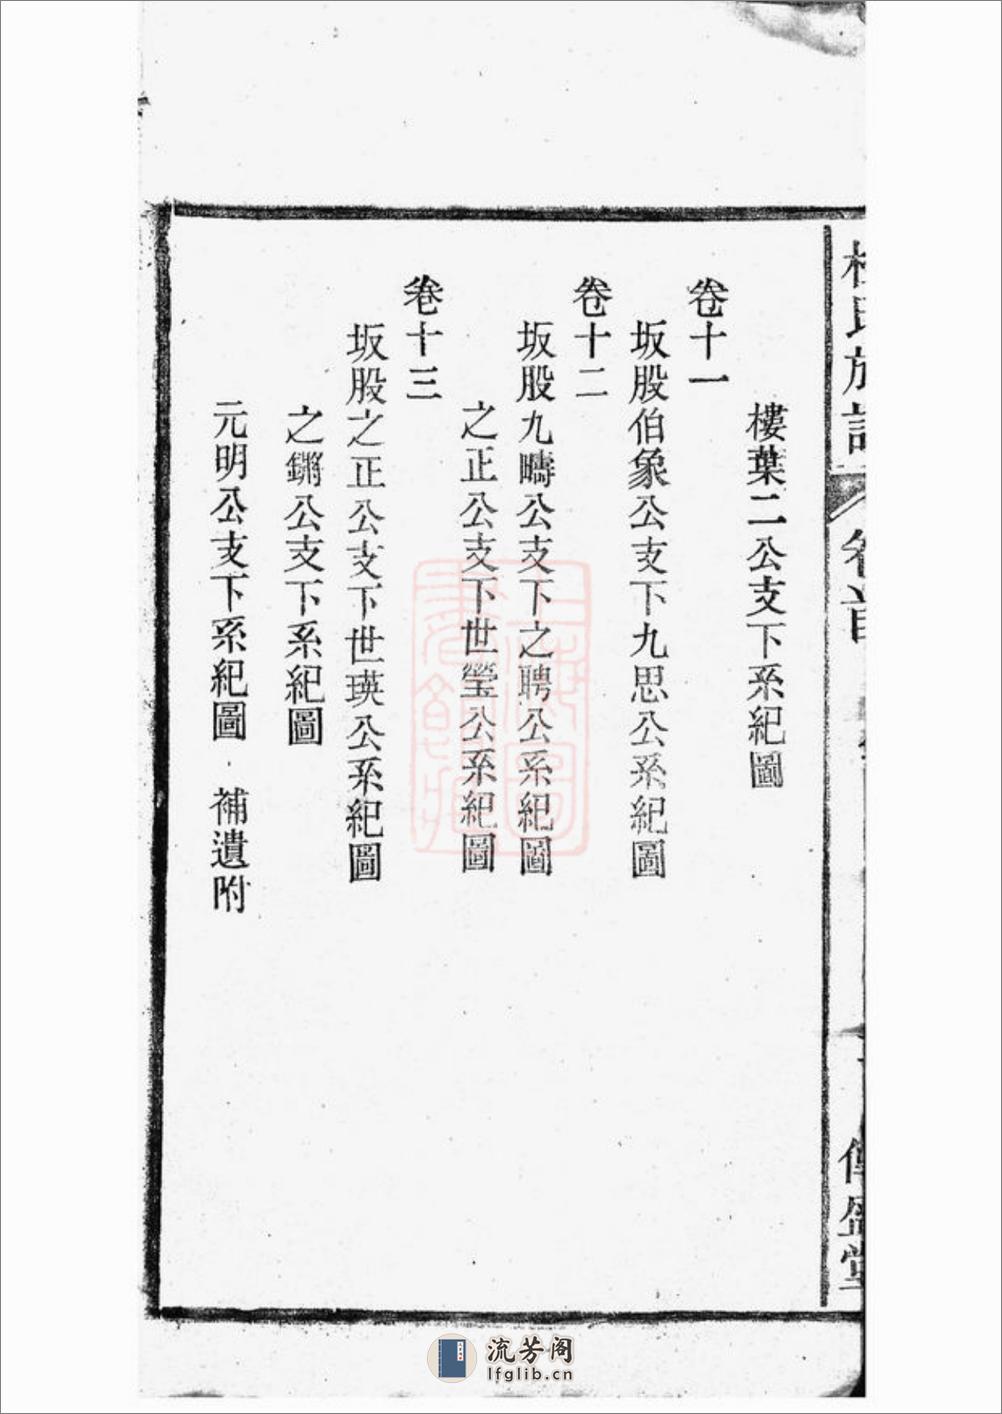 樓葉二公支下系紀圖
卷十一
坂股伯象公支下九思公系紀圖
卷十二
坂股九疇公支下之聘公系紀圖
之正公支下世瑩公系紀圖
卷十三
坂股之正公支下世瑛公系紀圖
之鏘公支下系紀圖
元明公支下系紀圖 補遺附
氏族譜 卷首 傳盈堂
上海圖書館藏
流芳阁
lfglib.cn